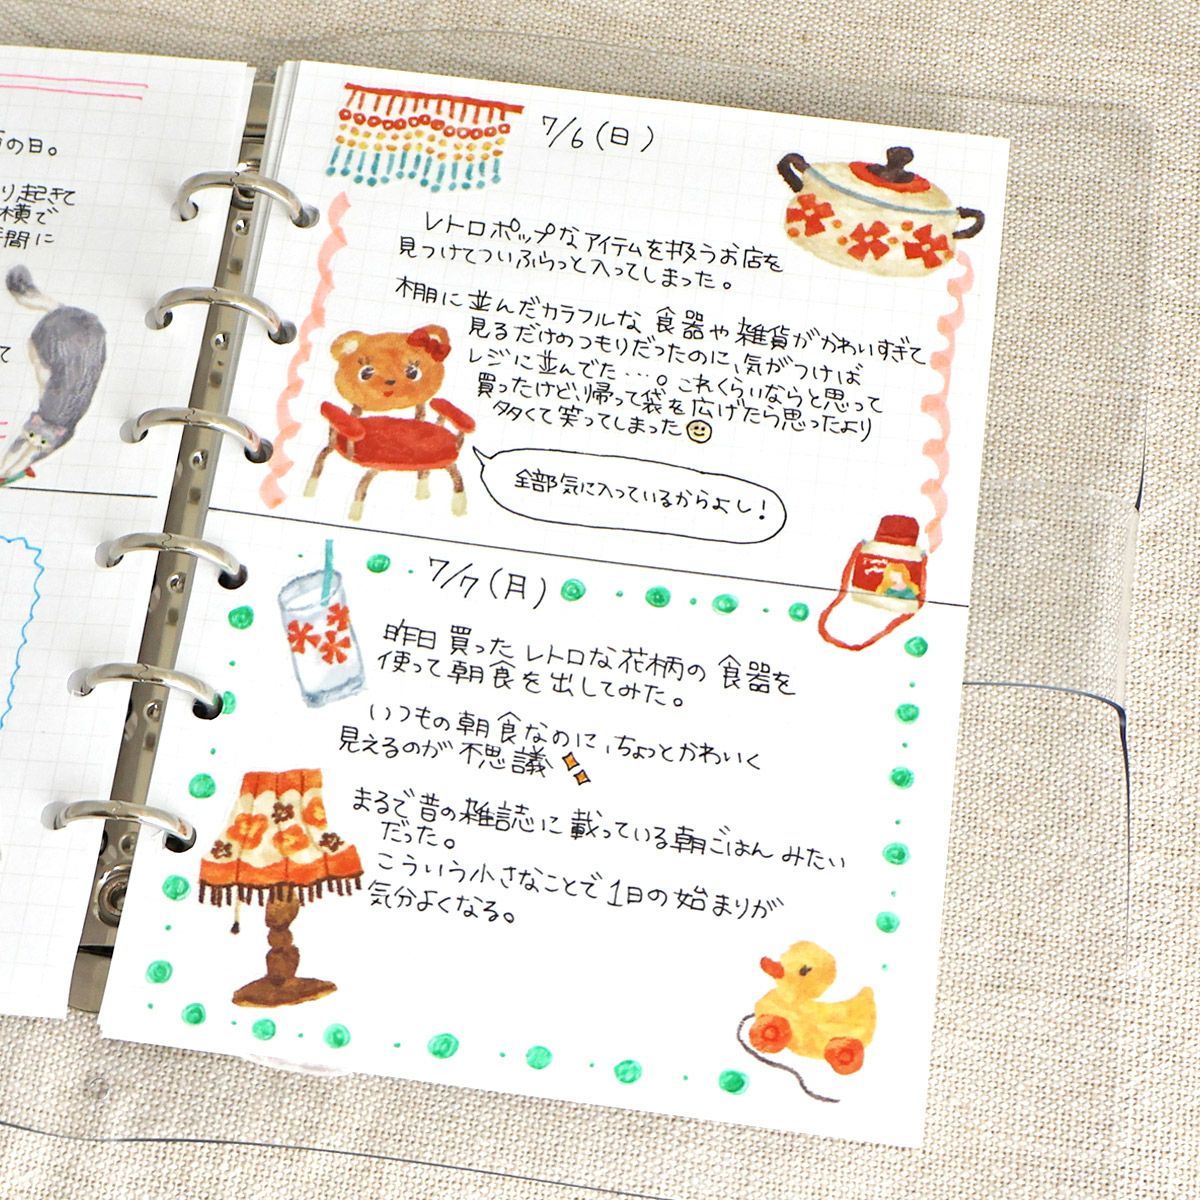 の日。
り,起きて
横で
間に
て
7/6(日)
レトロポップなアイテムを扱うお店を
見つけてついふらっと入ってしまった。
棚に並んだカラフルな食器や雑貨がかわいすぎて
見るだけのつもりだったのに、気がつけば
レジに並んでた…。これくらいならと思って
買ったけど、帰って袋を広げたら思ったより
多くて笑ってしまった
全部気に入っているからよし!
7/7(月)
昨日買ったレトロな花柄の食器を
使って朝食を出してみた。
いつもの朝食なのに、ちょっとかわいく
見えるのが不思議
まるで昔の雑誌に載っている朝ごはんみたい
だった。
こういう小さなことで1日の始まりが
気分よくなる。